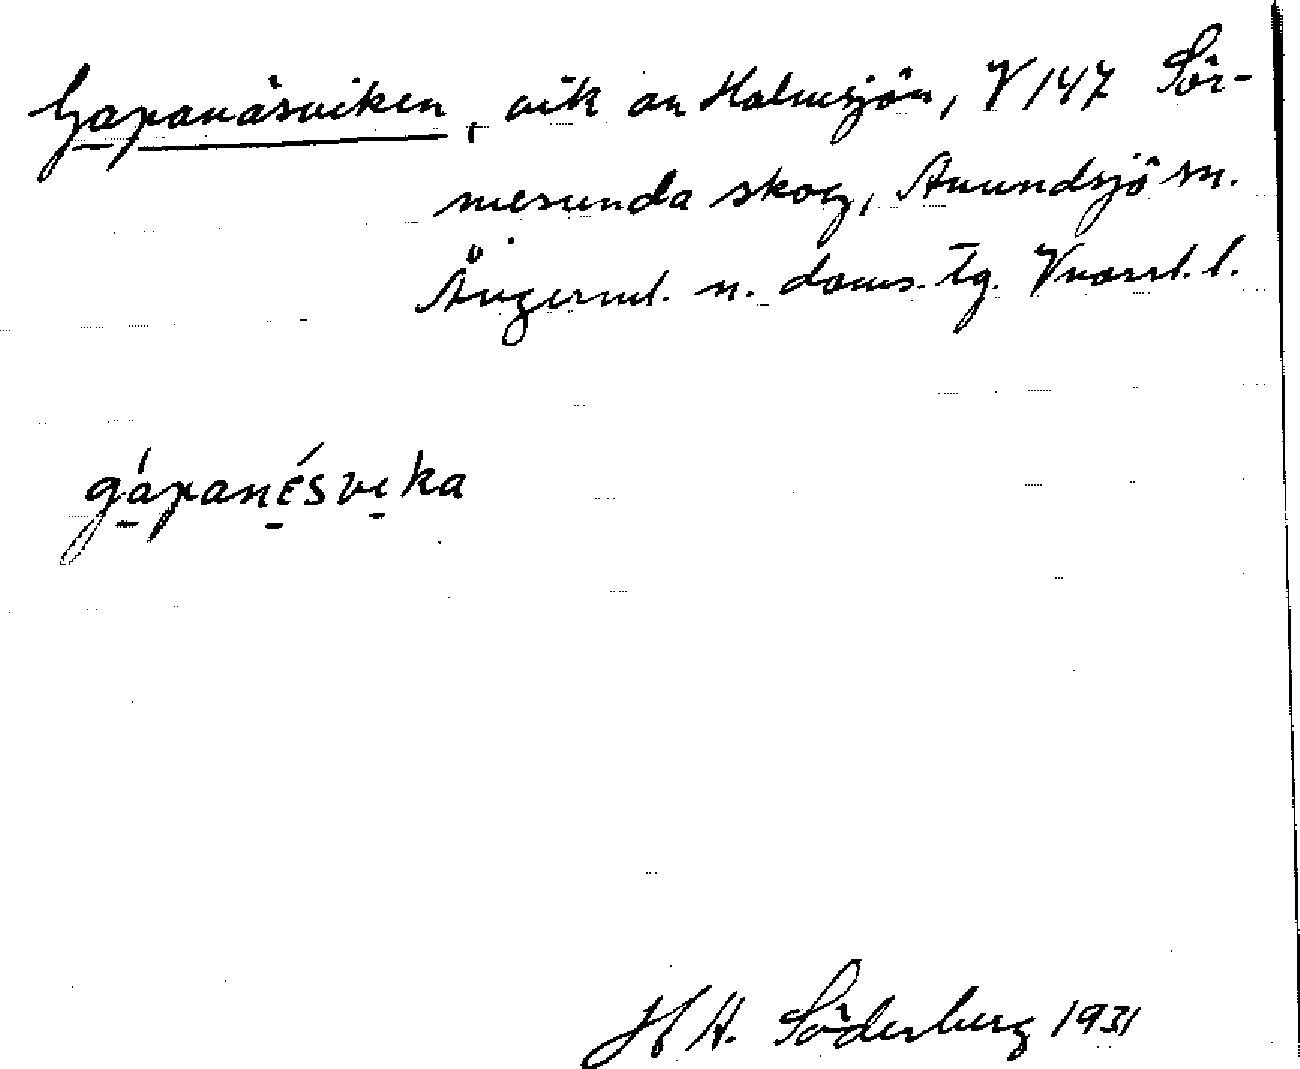 Gapanäsviken, vik av Holmsjön, V 147 Sör-
mesunda skog, Anundsjö sn.
Ångerml. n. doms. tg. Vnorrl. l.
gápanésvika
H H. Söderberg 1931